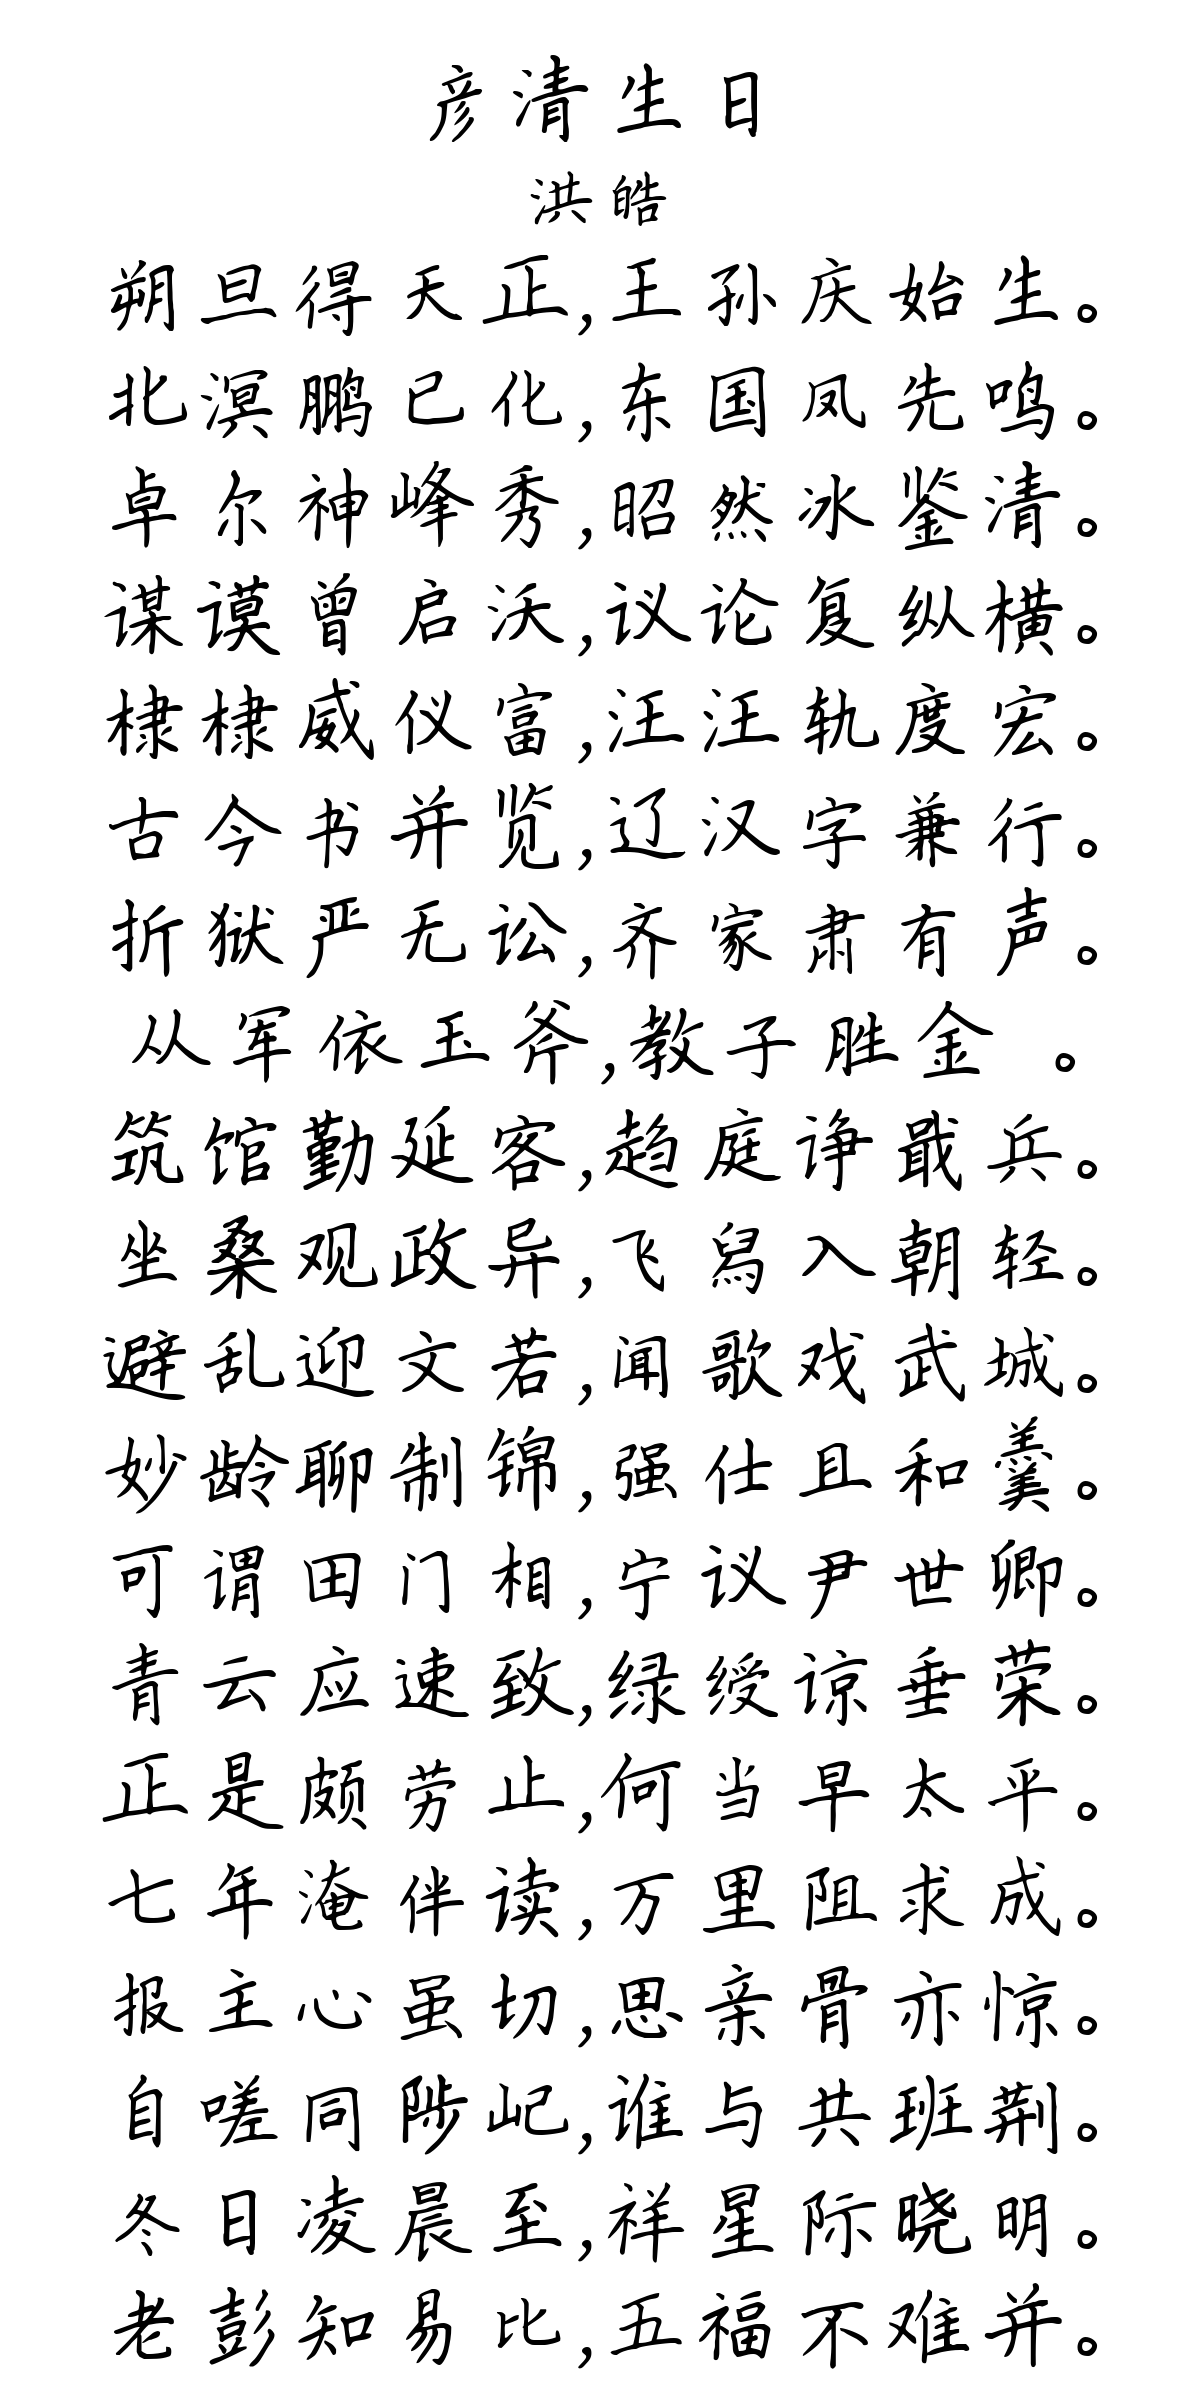 彦清生日
洪皓
朔旦得天正,王孙庆始生。
北溟鹏已化,东国凤先鸣。
卓尔神峰秀,昭然冰鉴清。
谋谟曾启沃,议论复纵横。
棣棣威仪富,汪汪轨度宏。
古今书并览,辽汉字兼行。
折狱严无讼,齐家肃有声。
从军依玉斧,教子胜金 。
筑馆勤延客,趋庭诤戢兵。
坐桑观政异,飞舄入朝轻。
避乱迎文若,闻歌戏武城。
妙龄聊制锦,强仕且和羹。
可谓田门相,宁议尹世卿。
青云应速致,绿绶谅垂荣。
正是颇劳止,何当早太平。
七年淹伴读,万里阻求成。
报主心虽切,思亲骨亦惊。
自嗟同陟屺,谁与共班荆。
冬日凌晨至,祥星际晓明。
老彭知易比,五福不难并。